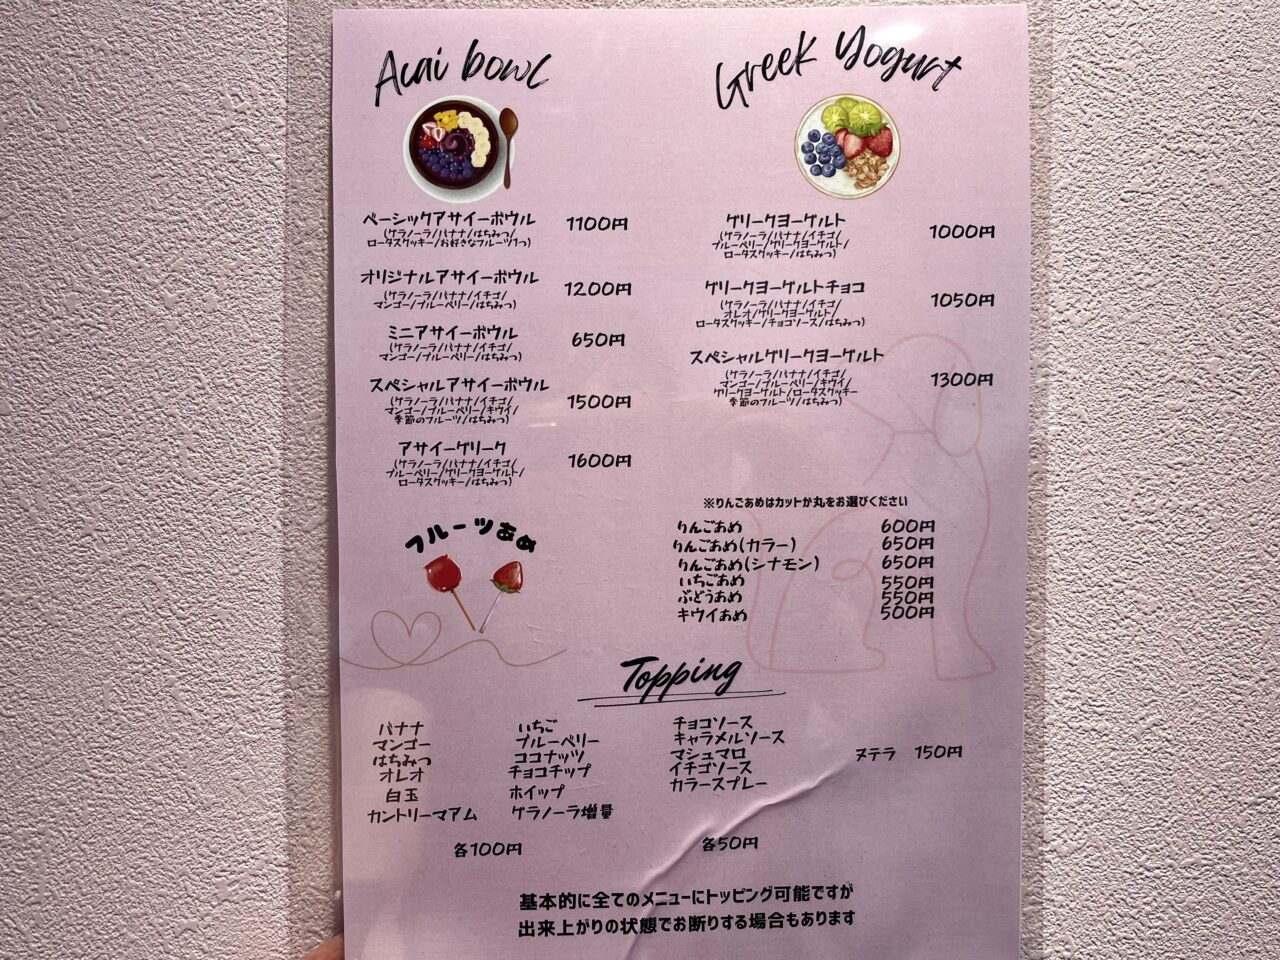 Acai bowl
ベーシックアサイーボウル 1100円
(グラノーラ/バナナ/はちみつ/
ロータスクッキー/お好きなフルーツ1つ)
オリジナルアサイーボウル 1200円
(グラノーラ/バナナ/イチゴ/
マンゴー/ブルーベリー/はちみつ)
ミニアサイーボウル 650円
(グラノーラ/バナナ/イチゴ/
マンゴー/ブルーベリー/はちみつ)
スペシャルアサイーボウル 1500円
(グラノーラ/バナナ/イチゴ/
マンゴー/ブルーベリー/キウイ/
季節のフルーツ/はちみつ)
アサイーグリーク 1600円
(グラノーラ/バナナ/イチゴ/
ブルーベリー/グリークヨーグルト/
ロータスクッキー/はちみつ)
Greek Yogurt
グリークヨーグルト 1000円
(グラノーラ/バナナ/イチゴ/
ブルーベリー/グリークヨーグルト/
ロータスクッキー/はちみつ)
グリークヨーグルトチョコ 1050円
(グラノーラ/バナナ/イチゴ/
オレオ/グリークヨーグルト/
ロータスクッキー/チョコソース/はちみつ)
スペシャルグリークヨーグルト 1300円
(グラノーラ/バナナ/イチゴ/
マンゴー/ブルーベリー/キウイ/
グリークヨーグルト/ロータスクッキー
季節のフルーツ/はちみつ)
フルーツあめ
※りんごあめはカットか丸をお選びください
りんごあめ 600円
りんごあめ(カラー) 650円
りんごあめ(シナモン) 650円
いちごあめ 550円
ぶどうあめ 550円
キウイあめ 500円
Topping
バナナ
マンゴー
はちみつ
オレオ
白玉
カントリーマアム
いちご
ブルーベリー
ココナッツ
チョコチップ
ホイップ
グラノーラ増量
各100円
チョコソース
キャラメルソース
マシュマロ
イチゴソース
カラースプレー
各50円
ヌテラ 150円
基本的に全てのメニューにトッピング可能ですが
出来上がりの状態でお断りする場合もあります